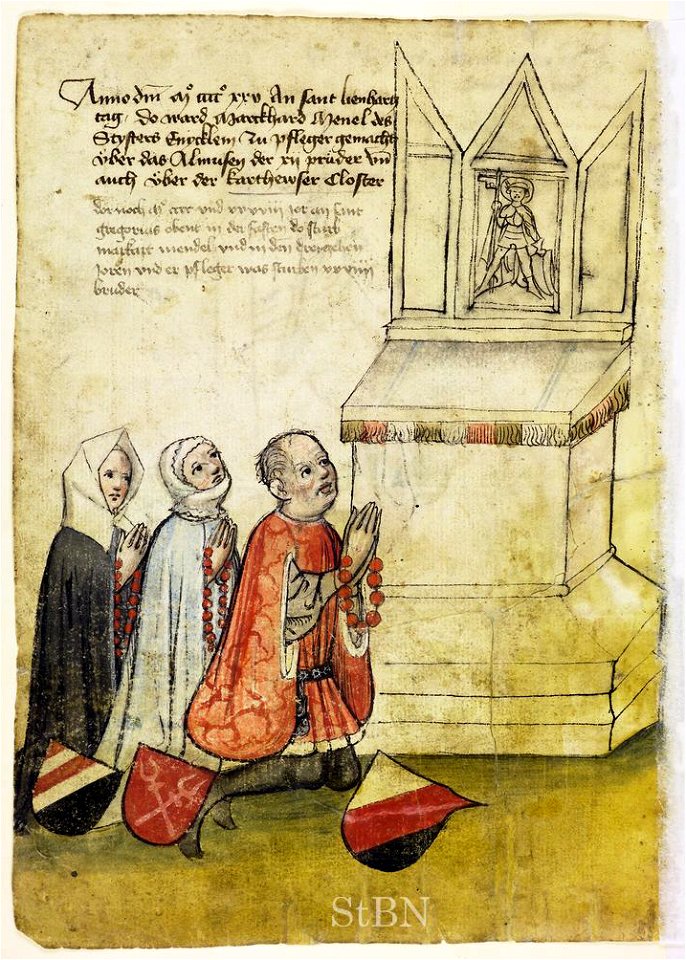 Anno dm̄ mͦ ccccͦ xxv An sant lienhartz
tag, do ward Marckhard Menel des
Styfters Enycklein Zu pfleger gemacht
vber das Almusen der xij prüder vnd
auch vber der karthewser Closter
dor noch mͦ cccc vnd xxxviij jor an sant
gregorius obent in der fasten do starb
markart mendel vnd in den dreyzehen
joren vnd er pfleger was sturben xxviiij
bruder
StBN